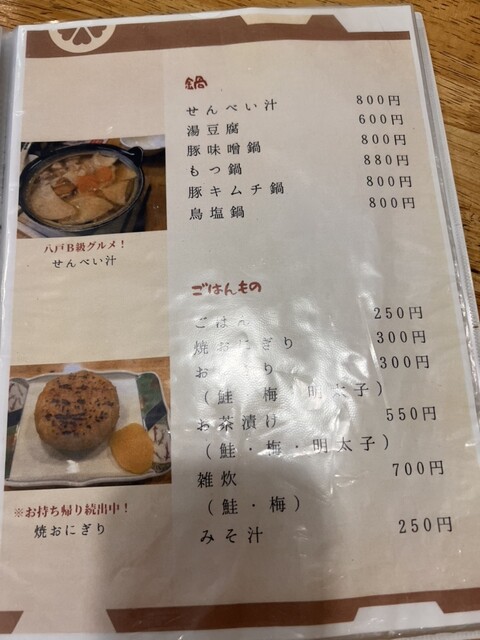 鍋
せんべい汁 800円
湯豆腐 600円
豚味噌鍋 800円
もつ鍋 880円
豚キムチ鍋 800円
鳥塩鍋 800円
八戸B級グルメ！
せんべい汁
ごはんもの
ごはん 250円
焼おにぎり 300円
おにぎり 300円
（鮭・梅・明太子）
お茶漬け 550円
（鮭・梅・明太子）
雑炊 700円
（鮭・梅）
みそ汁 250円
※お持ち帰り続出中！
焼おにぎり